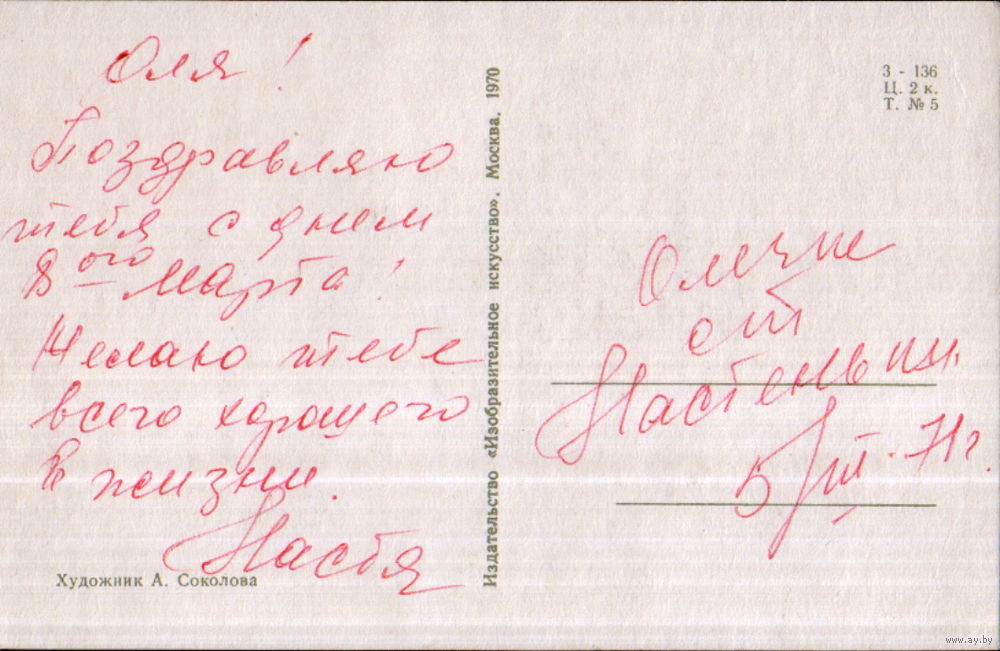 Оля!
Поздравляю
тебя с днем
8-ого Марта!
Желаю тебе
всего хорошего
в жизни.
Настя
Художник А. Соколова
Издательство «Изобразительное искусство». Москва. 1970
3 - 136
Ц. 2 к.
Т. № 5
Олечке
от
Настеньки.
5/III. 71г.
www.ay.by